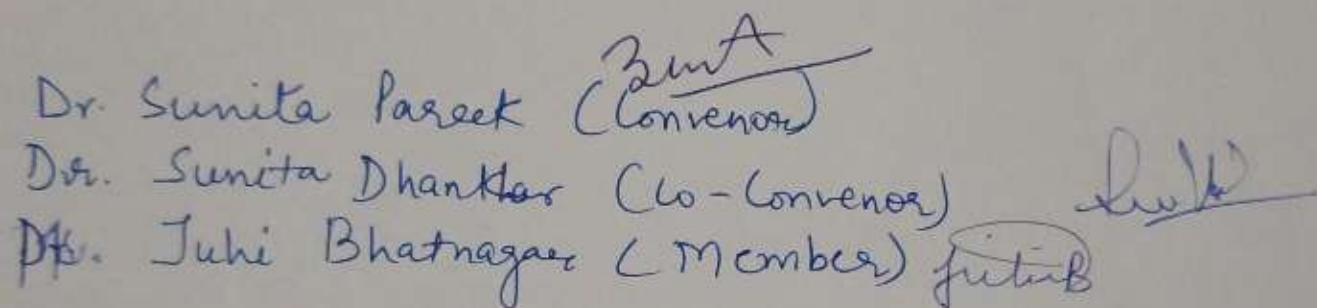 Dr. Sunita Pareek (Convenor)
Dr. Sunita Dhankhar (Co-Convenor)
Dr. Juhi Bhatnagar (Member) JuhiB